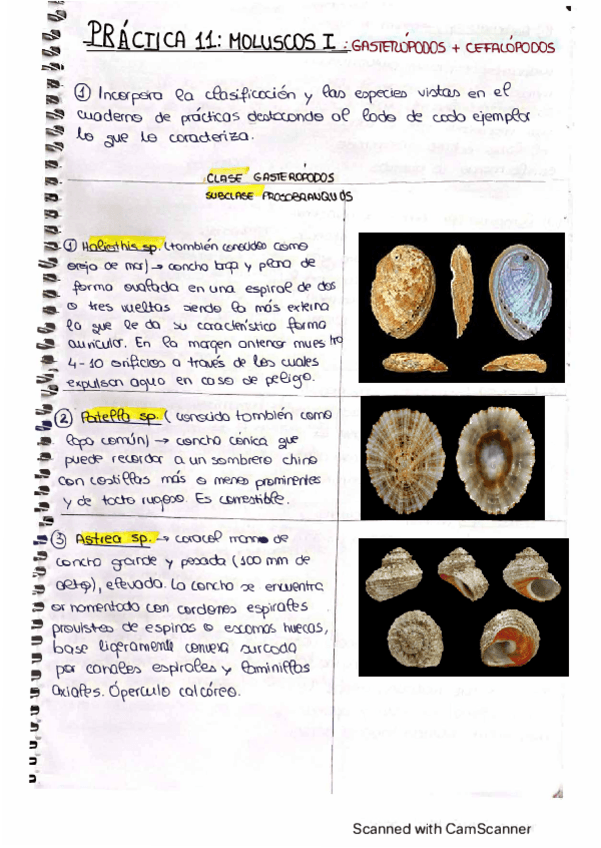 PRÁCTICA 11: MOLUSCOS I : GASTERÓPODOS + CEFALÓPODOS
① Incorpora la clasificación y las especies vistas en el
cuaderno de prácticas destacando al lado de cada ejemplar
lo que lo caracteriza.
CLASE GASTERÓPODOS
SUBCLASE PROSOBRANQUIOS
① Haliothis sp. (también conocidas como
oreja de mar) → concha baja y plana de
forma ovalada en una espiral de dos
o tres vueltas siendo la más externa
la que le da su característica forma
auricular. En la margen anterior muestra
4-10 orificios a través de los cuales
expulsan agua en caso de peligo.
② Patella sp. (conocida también como
lapa común) → concha cónica que
puede recordar a un sombrero chino
con costillas más o menos prominentes
y de tacto rugoso. Es comestible.
③ Astrea sp. → caracol marino de
concha grande y pesada (100 mm de
), elevada. La concha se encuentra
ornamentada con cordones espirales
provistos de espinas o escamas huecas,
base ligeramente convexa surcada
por canales espirales y laminillas
axiales. Ópérculo calcáreo.
Scanned with CamScanner